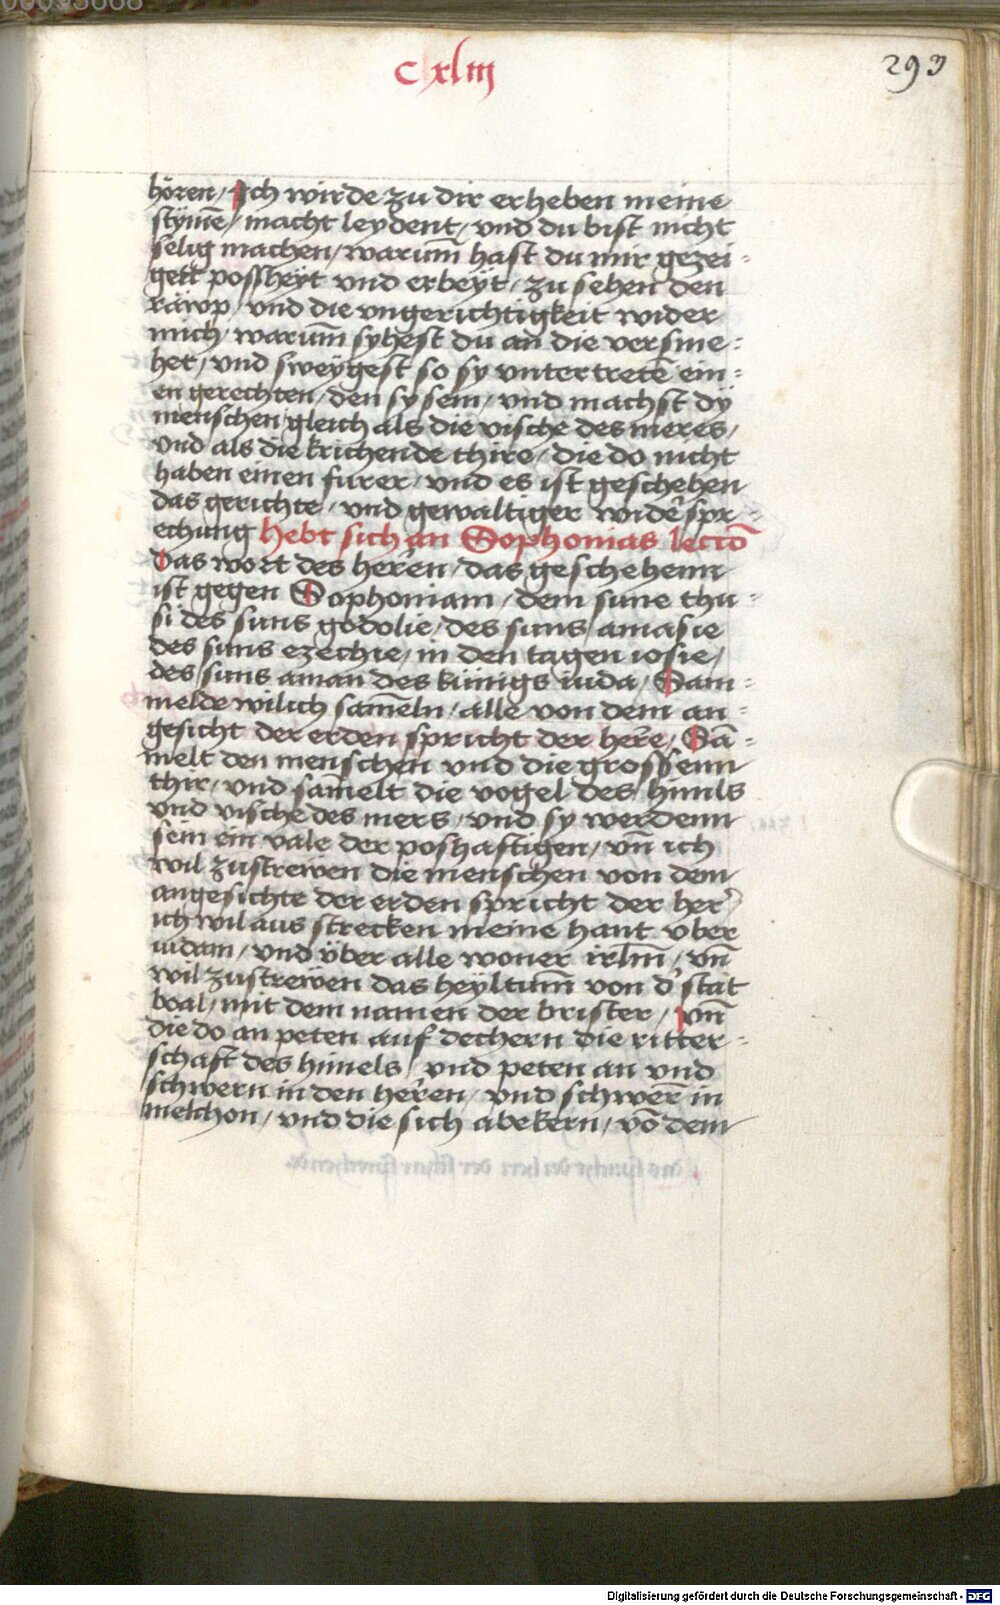 cxliij
293
hören / Ich wirde zu dir erheben meine
stÿmē / macht leydent / und du bist nicht
selig machen / warum̄ hast du mir gezei=
gett possheÿt und erbeÿt / zu sehen den
räwp / und die vngerichtigkeit wider
mich / warum̄ syhest du an die versme=
her / und sweÿgest so sy vntertretē ein=
en gerechten / den sy sein / und machst dÿ
menschen gleich als die vische des meres /
und als die krichende thire / die do nicht
haben einen furer / und es ist geschehen
das gerichte / und gewaltiger widerspr=
echung hebt sich an Sophonias lectio
Das wort des herren / das geschehenn
ist gegen Sophoniam / dem sune thu=
si des suns godolie / des suns amasie
des suns ezechie / in den tagen iosie /
des suns aman des künigs iuda / Sam=
melde wilich sam̄eln / alle von dem an=
gesicht der erden spricht der herre / Sā=
melt den menschen und die grossenn
thir / und sam̄elt die vogel des himls
und vische des mers / und sy werdenn
sein ein vale der poshaftigen / vn̄ ich
wil zustrewen die menschen von dem
angesichte der erden spricht der her
ich wil aus strecken meine hant vber
iudam / und über alle woner irl̄m / vn̄
wil zustreẅen das heyltum̄ von d' stat
boal / mit dem namen der brister / vn̄
die do an peten auf dechern die ritter=
schaft des himels / und peten an und
schwern in den herren / und schwern̄ in
melchon / und die sich abekern / vō dem
Digitalisierung gefördert durch die Deutsche Forschungsgemeinschaft - DFG